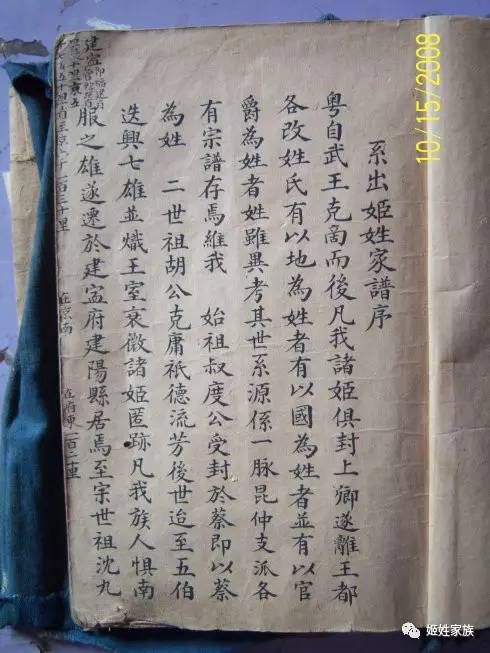 系出姬姓家譜序
粤自武王克商而後凡我諸姬俱封上卿遂離王都
各改姓氏有以地為姓者有以國為姓者並有以官
爵為姓者姓雖異考其世系源係一脉昆仲支派各
有宗譜存焉維我 始祖叔度公受封於蔡即以蔡
為姓 二世祖胡公克庸祇德流芳後世迨至五伯
迭興七雄並熾王室衰微諸姬匿跡凡我族人惧南
服之雄遂遷於建寍府建陽縣居焉至宗世祖沈九
建寍即福建省
里南至京六千一百三十里
在京南
在府東一百二十里
10/15/2008
姬姓家族